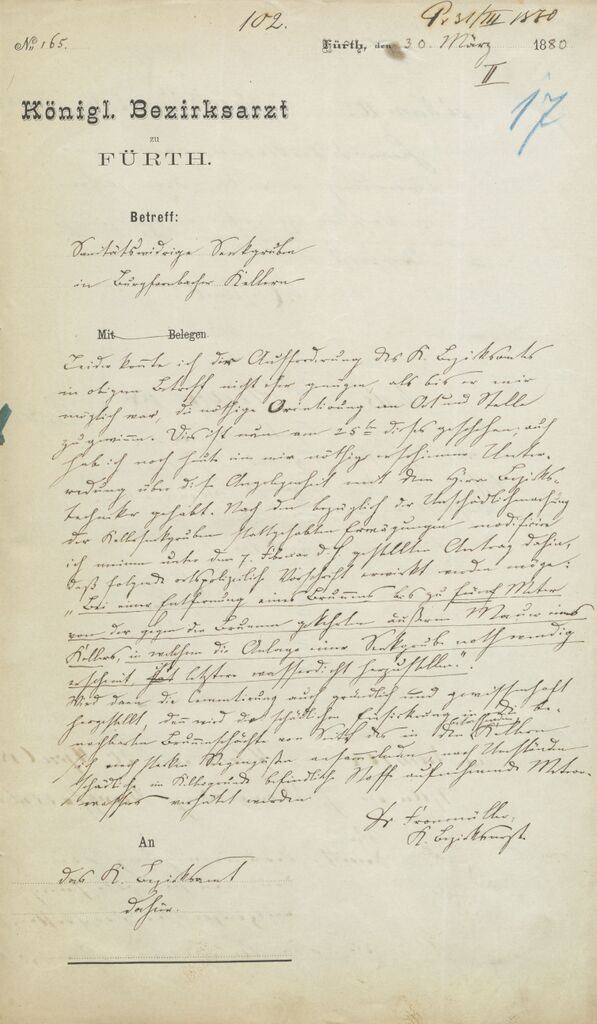 102.
Pr. 31/III 1880
No. 165.
Fürth, den 30. März 1880
II
17
Königl. Bezirksarzt
zu
FÜRTH.
Betreff:
Sanitätswidrige Senkgruben
in Burgfarnbacher Kellern
Mit Belegen
Leider konnte ich der Aufforderung des K. Bezirksamts
in obigem Betreff nicht eher genügen, als bis es mir
möglich war, die nöthige Orientirung an Ort und Stelle
zu gewinnen. Dies ist nun am 25ten dieses geschehen; auch
hab ich noch heute eine mir nöthig erschienene Unter-
redung über diese Angelegenheit mit dem Herrn Bezirks-
techniker gehabt. Nach den bezüglich der Unschädlichmachung
der Kellersenkgruben stattgehabten Erwägungen modifizire
ich meinen unter dem 7. Februar d. J. gestellten Antrag dahin,
daß folgende ortspolizeiliche Vorschrift erwirkt werden möge:
"Bei einer Entfernung eines Brunnens bis zu fünf Meter
von der gegen die Brunnen gekehrten äußern Mauer eines
Kellers, in welchem die Anlage einer Senkgrube nothwendig
erscheint ist letztere wasserdicht herzustellen."
Wird dann die Cementirung auch gründlich und gewissenhaft
hergestellt, dann wird der schädlichen Einsickerung in die be-
nachbarten Brunnenschächte von Seite des in den Kellern
sich nach starken Regengüßen ansammelnden, nach Umständen
schädliche im Kellergrunde befindliche Stoffe aufnehmende Meteor-
wassers verhütet werden
Dr Fronmüller,
K. Bezirksarzt.
An
das K. Bezirksamt
dahier.